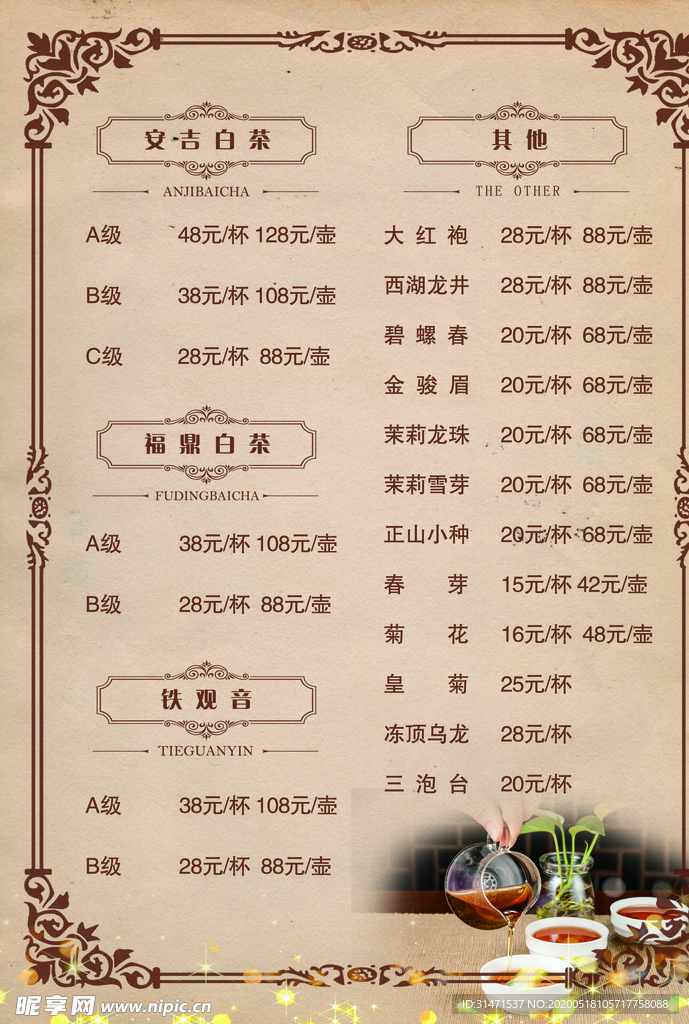 安吉白茶
ANJIBAICHA
A级 48元/杯 128元/壶
B级 38元/杯 108元/壶
C级 28元/杯 88元/壶
福鼎白茶
FUDINGBAICHA
A级 38元/杯 108元/壶
B级 28元/杯 88元/壶
铁观音
TIEGUANYIN
A级 38元/杯 108元/壶
B级 28元/杯 88元/壶
其他
THE OTHER
大红袍 28元/杯 88元/壶
西湖龙井 28元/杯 88元/壶
碧螺春 20元/杯 68元/壶
金骏眉 20元/杯 68元/壶
茉莉龙珠 20元/杯 68元/壶
茉莉雪芽 20元/杯 68元/壶
正山小种 20元/杯 68元/壶
春芽 15元/杯 42元/壶
菊花 16元/杯 48元/壶
皇菊 25元/杯
冻顶乌龙 28元/杯
三泡台 20元/杯
昵享网 www.nipic.cn
ID:31471537 NO:20200518105717758088